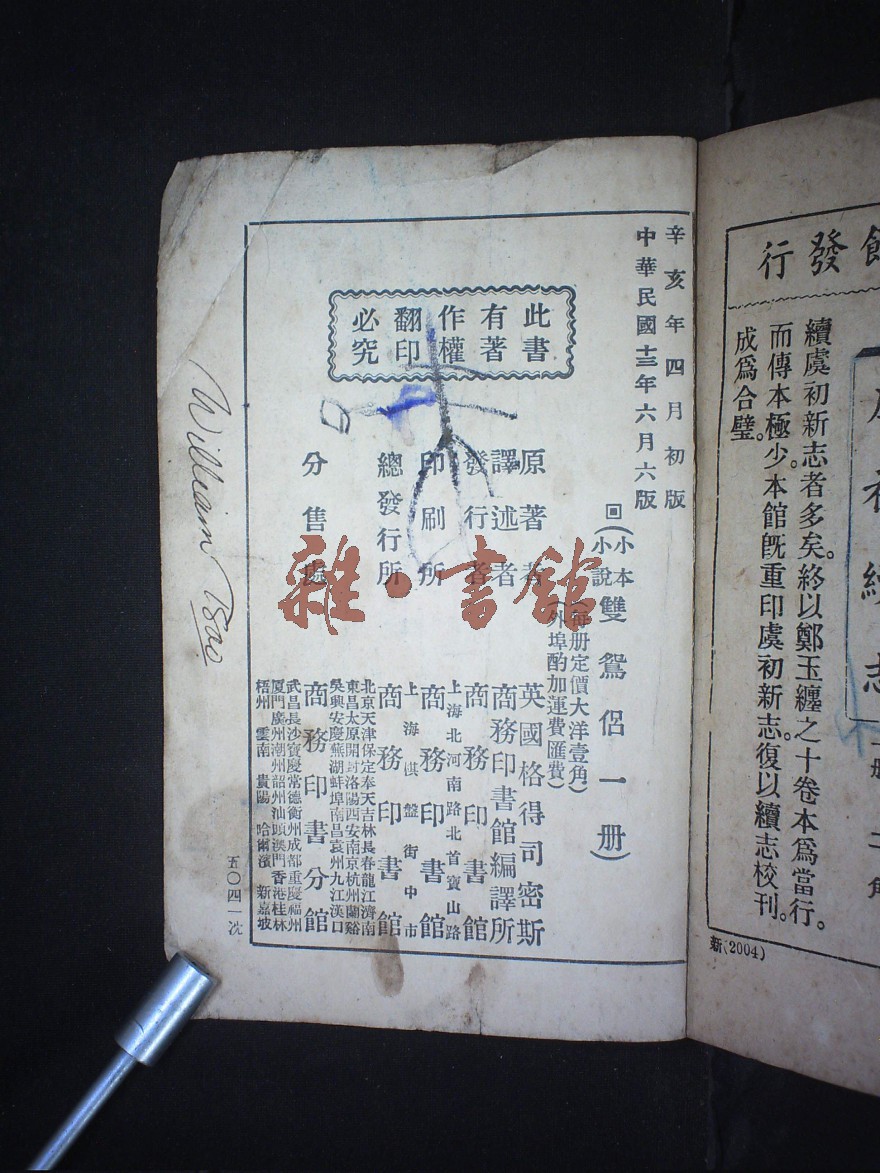 行發館
續虞初新志者多矣。終以鄭玉纏之十卷本爲當行。
而傳本極少。本館旣重印虞初新志。復以續志校刊。
成爲合璧。
新(2004)
辛亥年四月初版
中華民國十三年六月六版
此書
有著
作權
翻印
必究
回(小本小說雙鴛侶一册)
(每册定價大洋壹角)
(外埠酌加運費匯費)
原著者 英國格得司密斯
譯述者 商務印書館編譯所
發行者 商務印書館
印刷所 上海北河南路北首寶山路
商務印書館
總發行所 上海棋盤街中市
商務印書館
分售處 北京天津保定奉天吉林長春龍江濟南
東昌太原開封洛陽西安南京杭州蘭谿
吳興安慶蕪湖蚌埠南昌袁州九江漢口
商務印書分館
武昌長沙寶慶常德衡州成都重慶福州
厦門廣州潮州韶州汕頭澳門香港桂林
梧州雲南貴陽哈爾濱新嘉坡
五〇四一次
William Tsao
雜·書館